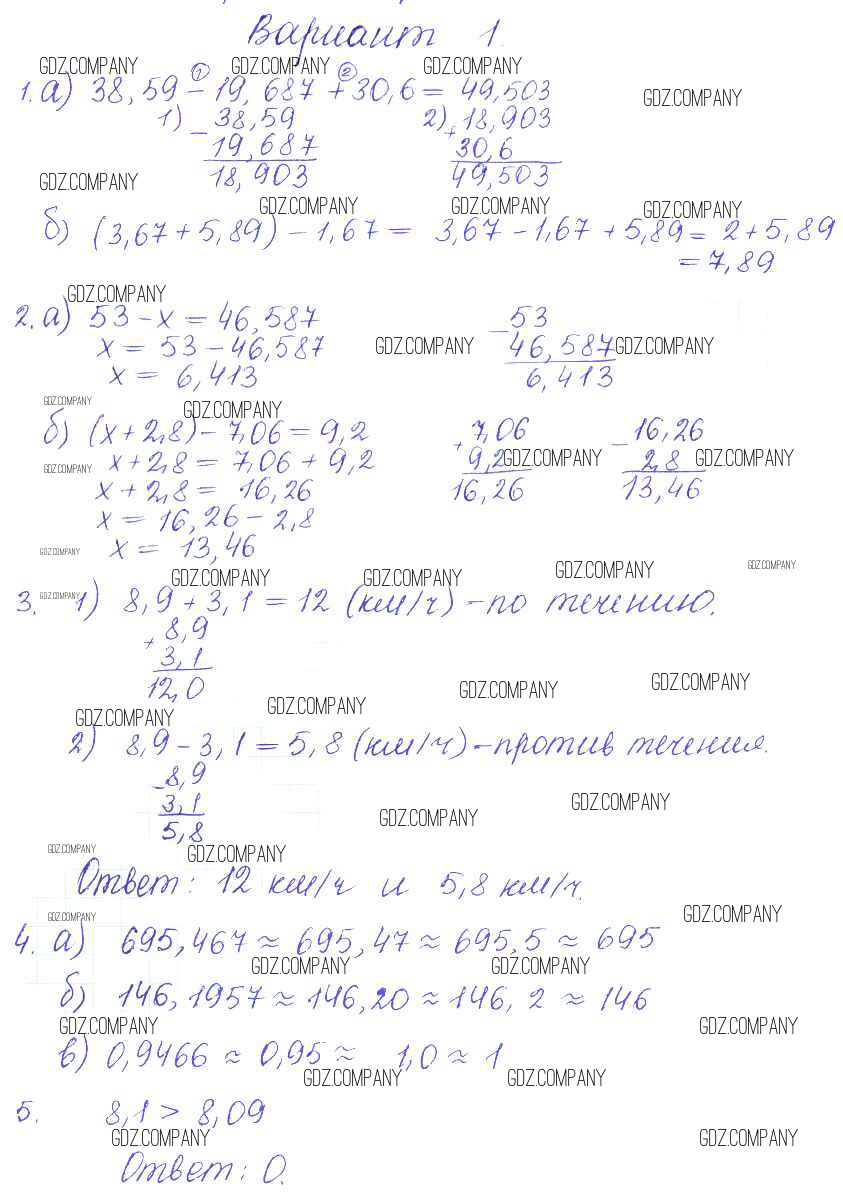 Вариант 1.
GDZ.COMPANY GDZ.COMPANY GDZ.COMPANY
1. а) 38,59 - 19,687 + 30,6 = 49,503
① ②
GDZ.COMPANY
1) - 38,59 2) + 18,903
19,687 30,6
18,903 49,503
GDZ.COMPANY
GDZ.COMPANY GDZ.COMPANY GDZ.COMPANY
б) (3,67 + 5,89) - 1,67 = 3,67 - 1,67 + 5,89 = 2 + 5,89
= 7,89
GDZ.COMPANY
2. а) 53 - x = 46,587 - 53
x = 53 - 46,587 GDZ.COMPANY 46,587 GDZ.COMPANY
x = 6,413 6,413
GDZ.COMPANY GDZ.COMPANY
б) (x + 2,8) - 7,06 = 9,2 + 7,06 - 16,26
GDZ.COMPANY x + 2,8 = 7,06 + 9,2 9,2 GDZ.COMPANY 2,8 GDZ.COMPANY
x + 2,8 = 16,26 16,26 13,46
x = 16,26 - 2,8
GDZ.COMPANY x = 13,46
GDZ.COMPANY GDZ.COMPANY GDZ.COMPANY GDZ.COMPANY
3. GDZ.COMPANY 1) 8,9 + 3,1 = 12 (км/ч) - по течению.
+ 8,9
3,1
12,0
GDZ.COMPANY GDZ.COMPANY GDZ.COMPANY GDZ.COMPANY
2) 8,9 - 3,1 = 5,8 (км/ч) - против течения.
- 8,9
3,1
5,8
GDZ.COMPANY GDZ.COMPANY
GDZ.COMPANY GDZ.COMPANY
Ответ: 12 км/ч и 5,8 км/ч.
GDZ.COMPANY GDZ.COMPANY
4. а) 695,467 ≈ 695,47 ≈ 695,5 ≈ 695
GDZ.COMPANY GDZ.COMPANY
б) 146,1957 ≈ 146,20 ≈ 146,2 ≈ 146
GDZ.COMPANY GDZ.COMPANY
в) 0,9466 ≈ 0,95 ≈ 1,0 ≈ 1
GDZ.COMPANY GDZ.COMPANY
5. 8,1 > 8,09
GDZ.COMPANY GDZ.COMPANY
Ответ: 0.